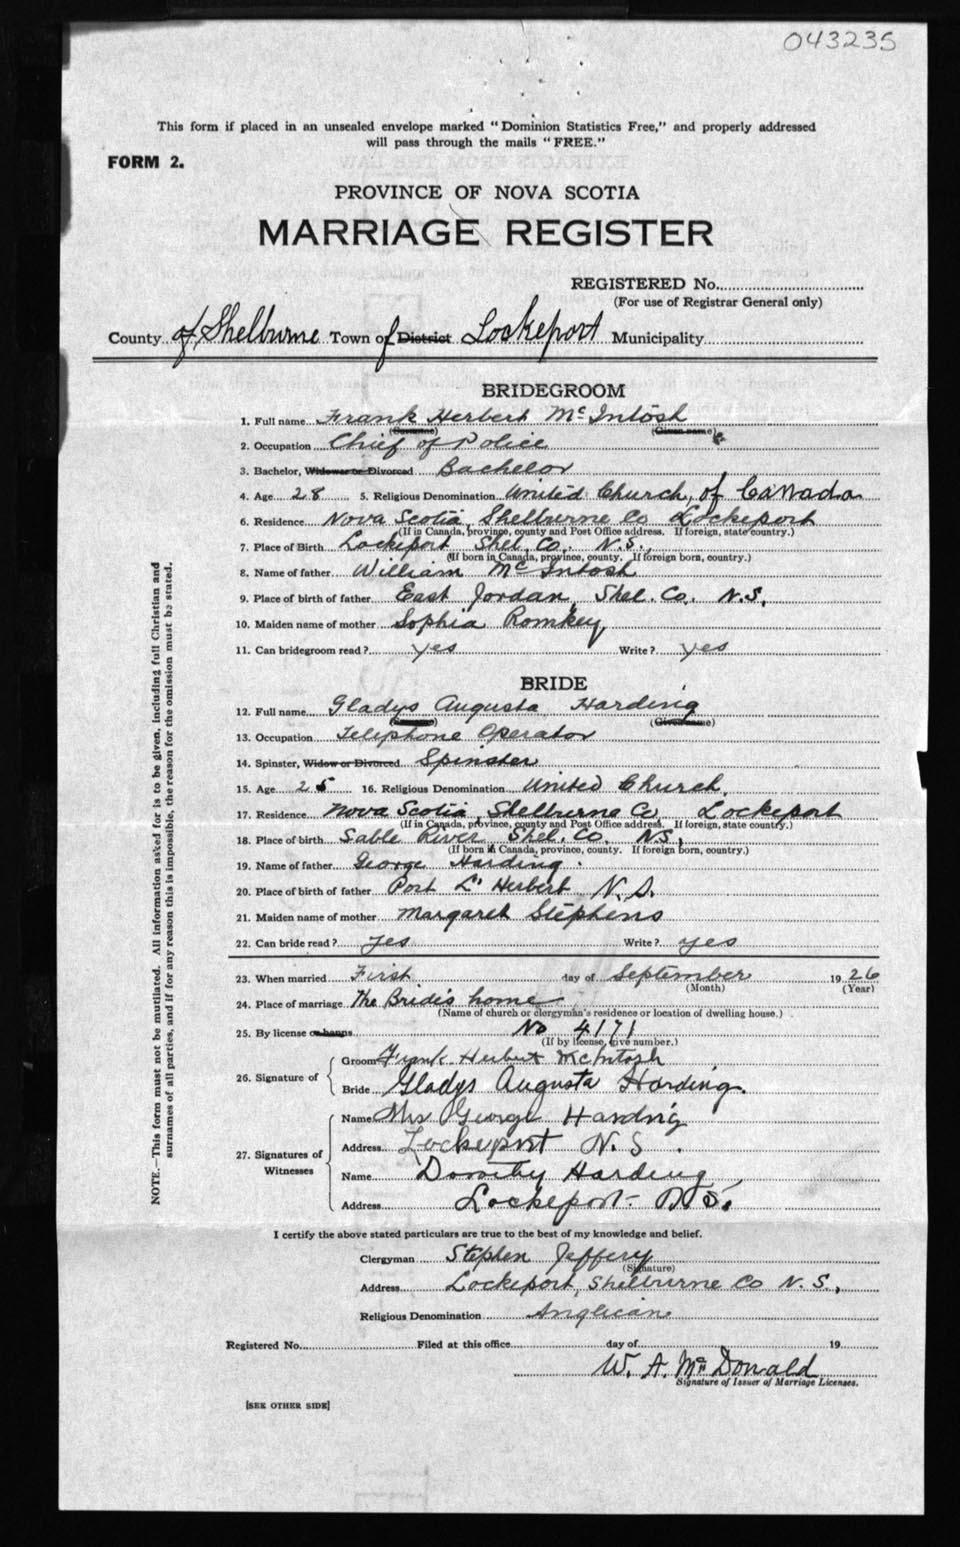 043235
This form if placed in an unsealed envelope marked "Dominion Statistics Free," and properly addressed
will pass through the mails "FREE."
FORM 2.
PROVINCE OF NOVA SCOTIA
MARRIAGE REGISTER
REGISTERED No.
(For use of Registrar General only)
County of Shelburne Town of District Lockeport Municipality
BRIDEGROOM
1. Full name Frank Herbert McIntosh
(Surname) (Given name)
2. Occupation Chief of Police
3. Bachelor, Widower or Divorced Bachelor
4. Age 28 5. Religious Denomination United Church, of Canada
6. Residence Nova Scotia, Shelburne Co Lockeport
(If in Canada, province, county and Post Office address. If foreign, state country.)
7. Place of Birth Lockeport Shel. Co. N.S.,
(If born in Canada, province, county. If foreign born, country.)
8. Name of father William McIntosh
9. Place of birth of father East Jordan, Shel. Co. N.S.
10. Maiden name of mother Sophia Romkey
11. Can bridegroom read? yes Write? yes
BRIDE
12. Full name Gladys Augusta Harding
(Surname) (Given name)
13. Occupation Telephone Operator
14. Spinster, Widow or Divorced Spinster
15. Age 25 16. Religious Denomination United Church,
17. Residence Nova Scotia, Shelburne Co, Lockeport
(If in Canada, province, county and Post Office address. If foreign, state country.)
18. Place of birth Sable River Shel. Co. N.S.,
(If born in Canada, province, county. If foreign born, country.)
19. Name of father George Harding.
20. Place of birth of father Port L'Herbert N.S.
21. Maiden name of mother Margaret Stephens
22. Can bride read? yes Write? yes
23. When married First day of September 1926
(Month) (Year)
24. Place of marriage The Bride's home
(Name of church or clergyman's residence or location of dwelling house.)
25. By license or banns No 4171
(If by license, give number.)
26. Signature of
Groom Frank Herbert McIntosh
Bride Gladys Augusta Harding.
27. Signatures of Witnesses
Name Mrs George Harding
Address Lockeport N.S.
Name Dorothy Harding
Address Lockeport- N.S.
I certify the above stated particulars are true to the best of my knowledge and belief.
Clergyman Stephen Jeffery
(Signature)
Address Lockeport, Shelburne Co N.S.,
Religious Denomination Anglican
Registered No. Filed at this office day of 19
W. A. McDonald
Signature of Issuer of Marriage Licenses.
[SEE OTHER SIDE]
NOTE.—This form must not be mutilated. All information asked for is to be given, including full Christian and
surnames of all parties, and if for any reason this is impossible, the reason for the omission must be stated.